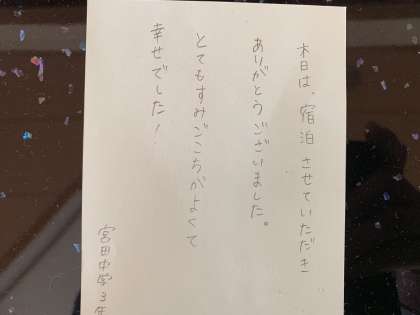 本日は、宿泊させていただき
ありがとうございました。
とてもすみごこちがよくて
幸せでした！
宮田中学3年